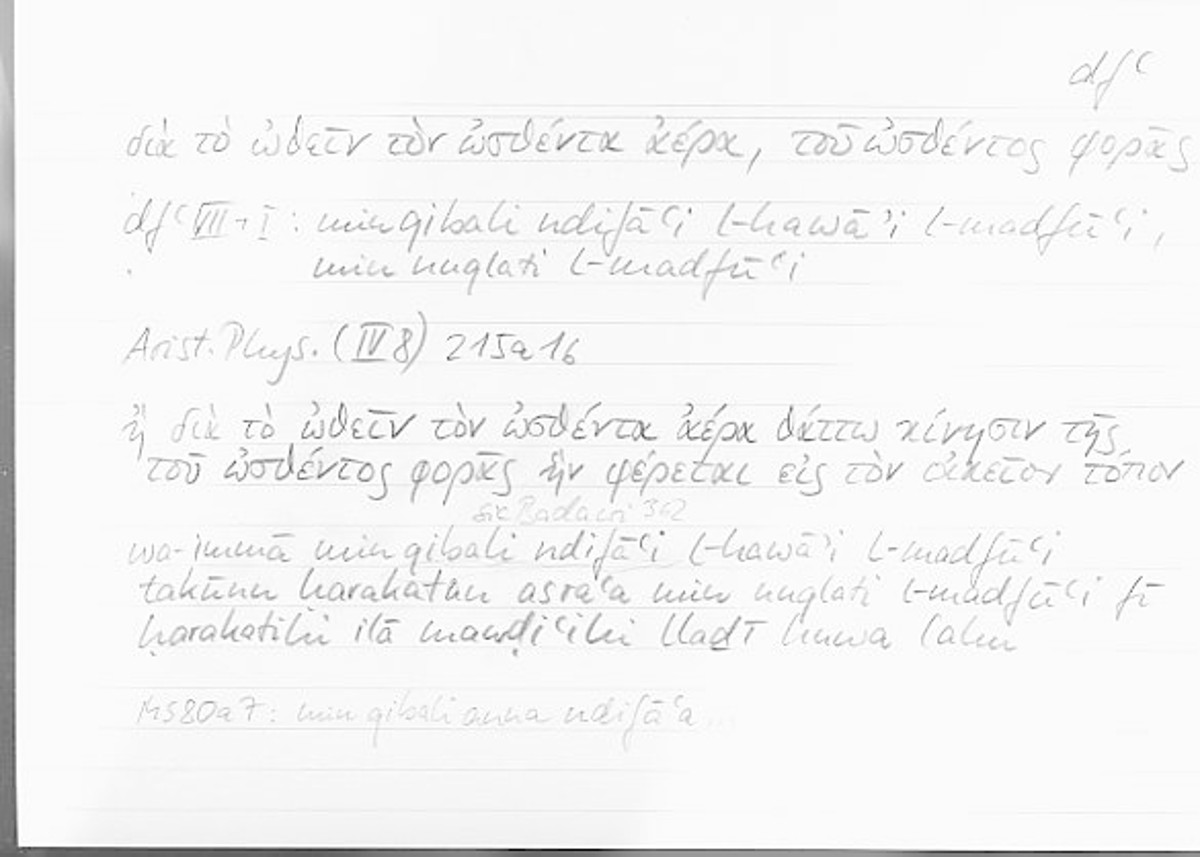 dfʿ
διὰ τὸ ὠθεῖν τὸν ὠσθέντα ἀέρα, τοῦ ὠσθέντος φορᾶς
dfʿ VII → I : min qibali ndifāʿi l-hawāʾi l-madfūʿi,
min nuqlati l-madfūʿi
Arist. Phys. (IV 8) 215a16
ἢ διὰ τὸ ὠθεῖν τὸν ὠσθέντα ἀέρα θάττω κίνησιν τῆς
τοῦ ὠσθέντος φορᾶς ἣν φέρεται εἰς τὸν οἰκεῖον τόπον
sic Badawi 362
wa-immā min qibali ndifāʿi l-hawāʾi l-madfūʿi
takūnu ḥarakatun asraʿa min nuqlati l-madfūʿi fī
ḥarakatihi ilā mawḍiʿihi lladī huwa lahu
MS80a7: min qibali anna ndifāʿa ...